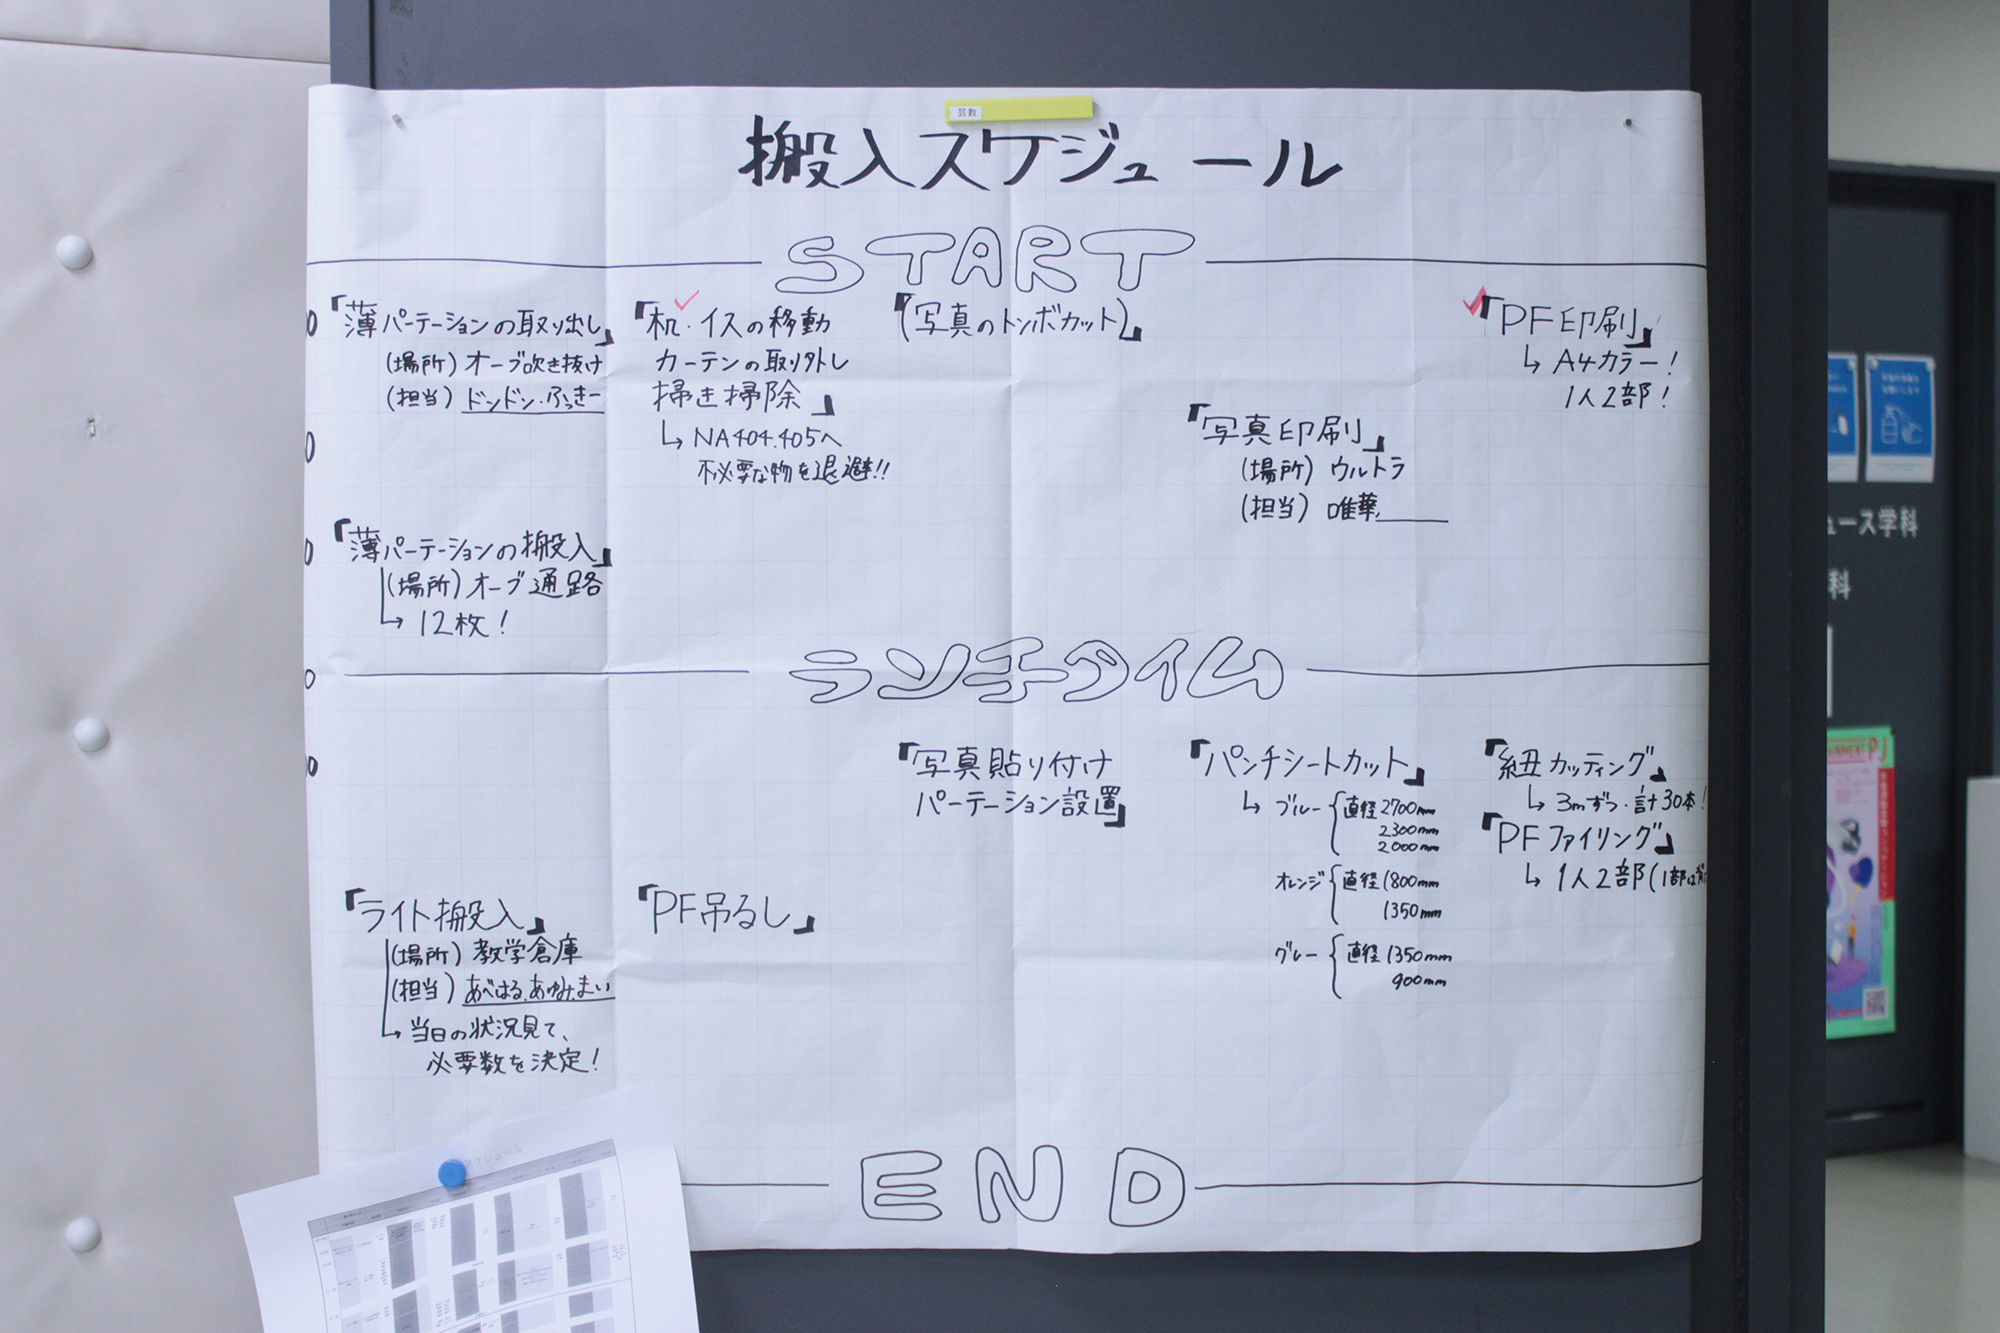 芸教
搬入スケジュール
START
「薄パーテーションの取り出し」
(場所) オーブ吹き抜け
(担当) ドンドン・ふっきー
「机・イスの移動
カーテンの取り外し
掃き掃除」
↳ NA404.405へ
不必要な物を退避!!
「(写真のトンボカット)」
「写真印刷」
(場所) ウルトラ
(担当) 唯華
「PF印刷」
↳ A4カラー!
1人2部!
「薄パーテーションの搬入」
(場所) オーブ通路
↳ 12枚!
ランチタイム
「写真貼り付け
パーテーション設置」
「パンチシートカット」
↳ ブルー { 直径2700mm
2300mm
2000mm
オレンジ { 直径1800mm
1350mm
グレー { 直径1350mm
900mm
「紐カッティング」
↳ 3mずつ・計30本!
「PFファイリング」
↳ 1人2部(1部は
「ライト搬入」
(場所) 教学倉庫
(担当) あべはる、あゆみ、まい
↳ 当日の状況見て、
必要数を決定!
「PF吊るし」
END
ュース学科
科
PJ